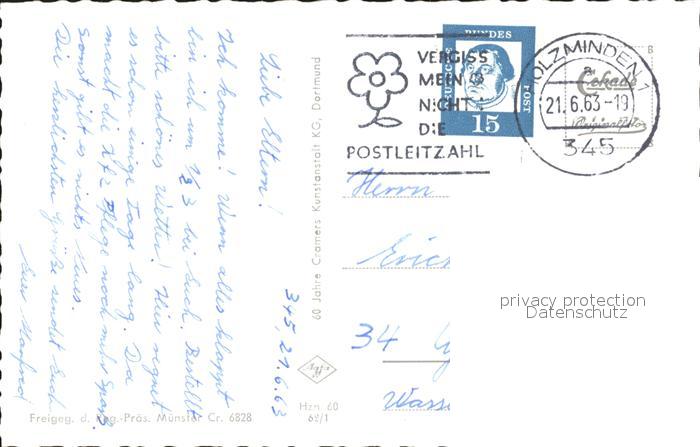 345, 21.6.63
Liebe Eltern!
Ich komme! Wenn alles klappt
bin ich 1/2 3 bei Euch. Bestellt
bitte schönes Wetter! Hier regnet
es schon einige Tage lang. Da
macht die Kfz Pflege noch mehr Spass.
Sonst gibt es nichts Neues.
Die herzlichsten Grüße sendet Euch
Euer Manfred
Freigeg. d. Reg.-Präs. Münster Cr. 6828
60 Jahre Cramers Kunstanstalt KG, Dortmund
Hzn. 60
62/1
VERGISS
MEIN
NICHT
DIE
POSTLEITZAHL
DEUTSCHE
BUNDES
POST
15
HOLZMINDEN 1
a
21.6.63-19
345
Cekade
Originalfoto
B
Herrn
Eric
34
Wasse
privacy protection
Datenschutz